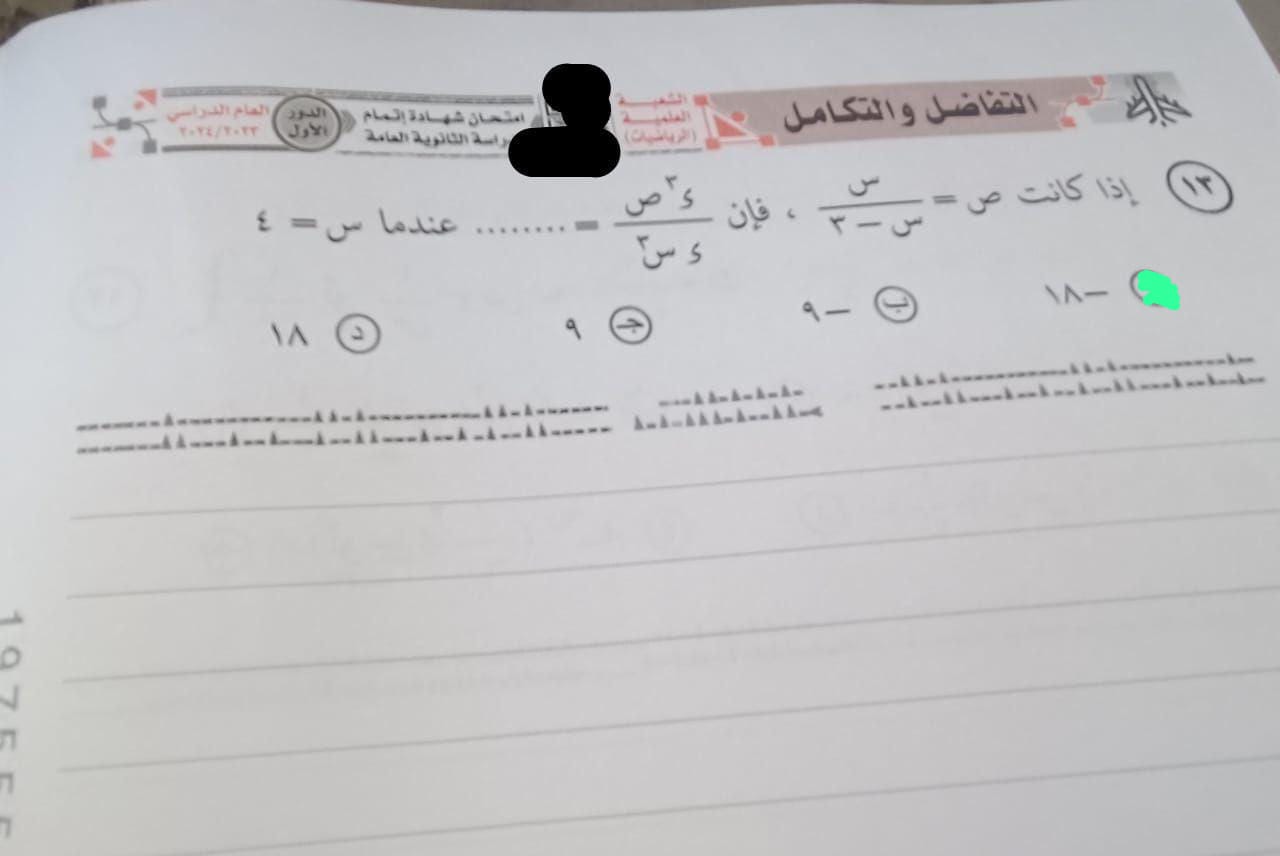 التفاضل والتكامل
الشعبة
العلمية
(الرياضيات)
امتحان شهادة إتمام
الثانوية العامة
الدور
الأول
العام الدراسي
٢٠٢٤/٢٠٢٣
١٣ إذا كانت ص = س / (س – ٣) ، فإن ء٣ص / ء س٣ = ........ عندما س = ٤
–١٨
ب –٩
جـ ٩
د ١٨
197555